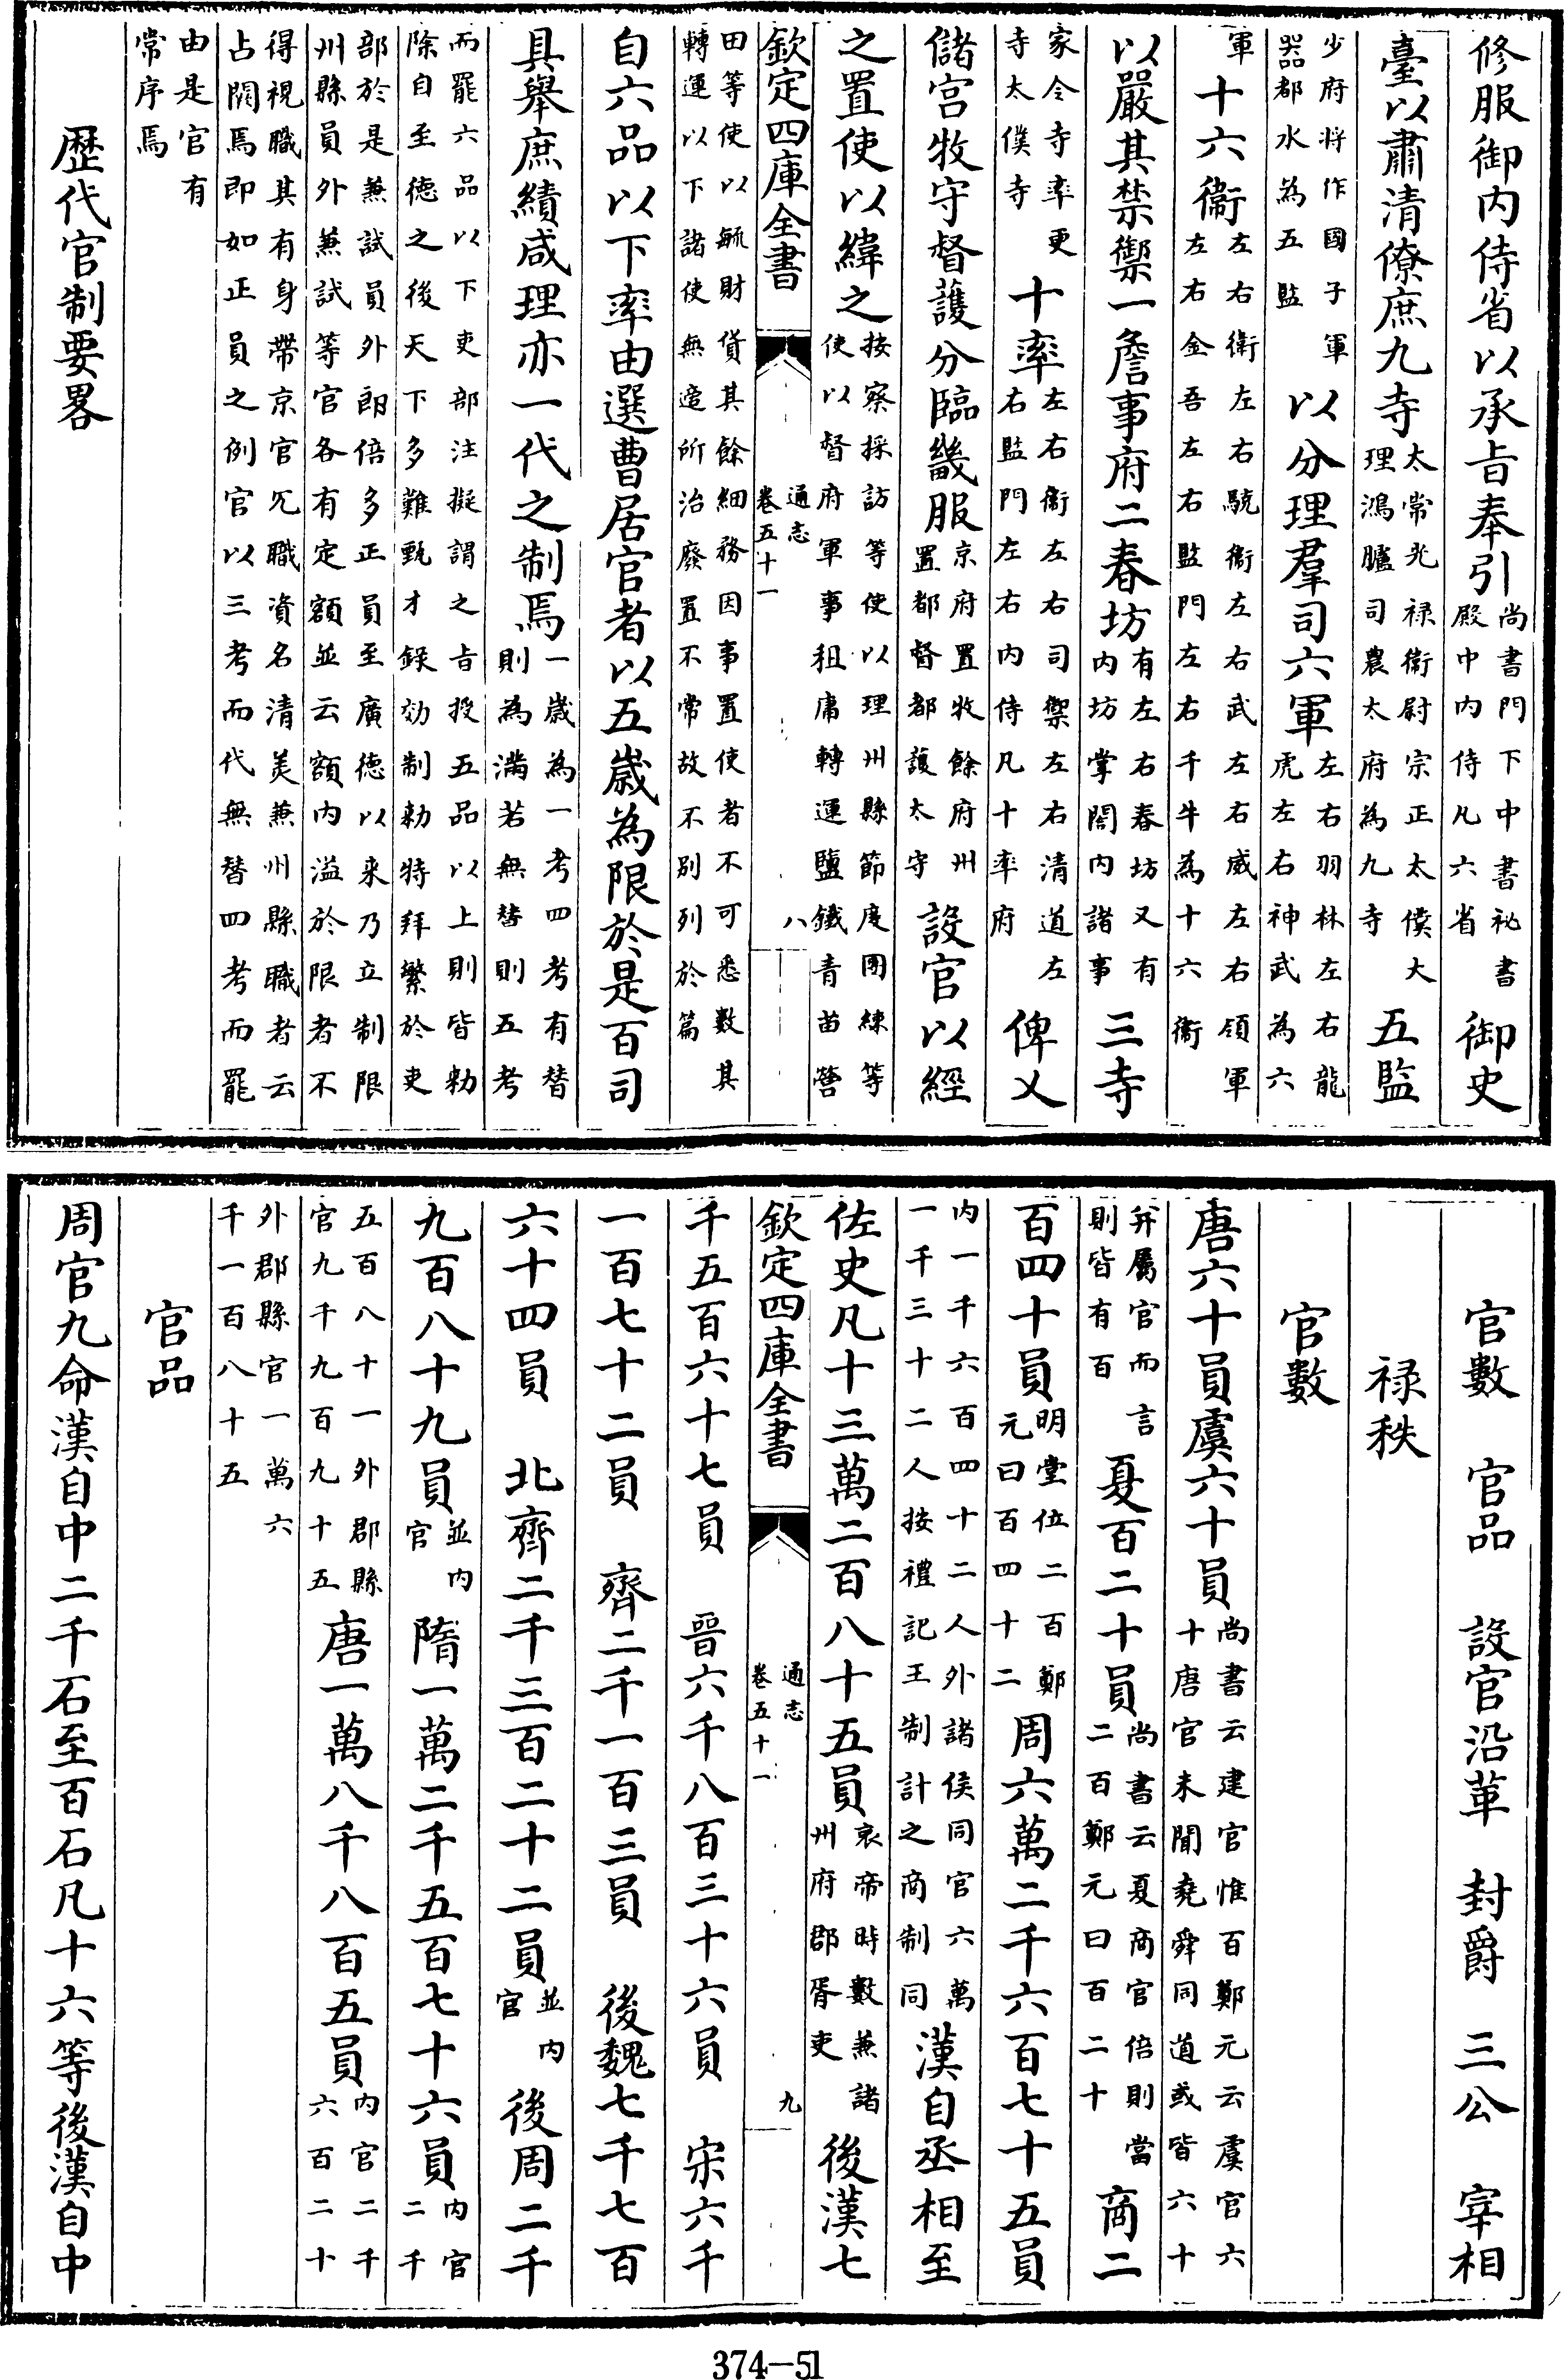 修服御内侍省以承㫖奉引尚書門下中書祕書殿中内侍凡六省御史
臺以肅清僚庶九寺太常光禄衛尉宗正太僕大理鴻臚司農太府為九寺五監
少府将作國子軍器都水為五監以分理羣司六軍左右羽林左右龍虎左右神武為六
軍十六衛左右衛左右驍衛左右武左右威左右領軍左右金吾左右監門左右千牛為十六衛
以嚴其禁禦一詹事府二春坊有左右春坊又有内坊掌閤内諸事三寺
家令寺率更寺太僕寺十率左右衛左右司禦左右清道左右監門左右内侍凡十率府俾乂
儲宫牧守督䕶分臨畿服京府置牧餘府州置都督都䕶太守設官以經
之置使以緯之按察採訪等使以理州縣節度團練等使以督府軍事租庸轉運鹽鐵青苗營
欽定四庫全書 通志 卷五十一 八
田等使以毓財貨其餘細務因事置使者不可悉數其轉運以下諸使無適所治廢置不常故不别列於篇
自六品以下率由選曹居官者以五歲為限於是百司
具舉庶績咸理亦一代之制焉一歲為一考四考有替則為滿若無替則五考
而罷六品以下吏部注擬謂之㫖授五品以上則皆勅除自至徳之後天下多難甄才録効制勅特拜繁於吏
部於是兼試員外郎倍多正員至廣徳以來乃立制限州縣員外兼試等官各有定額並云額内溢於限者不
得視職其有身帶京官冗職資名清美兼州縣職者云占闕焉即如正員之例官以三考而代無替四考而罷
由是官有常序焉
歴代官制要畧
官數 官品 設官沿革 封爵 三公 宰相
禄秩
官數
唐六十員虞六十員尚書云建官惟百鄭元云虞官六十唐官未聞堯舜同道或皆六十
并屬官而言則皆有百夏百二十員尚書云夏商官倍則當二百鄭元曰百二十商二
百四十員明堂位二百鄭元曰百四十二周六萬二千六百七十五員
内一千六百四十二人外諸侯同官六萬一千三十二人按禮記王制計之商制同漢自丞相至
佐史凡十三萬二百八十五員哀帝時數兼諸州府郡胥吏後漢七
欽定四庫全書 通志 卷五十一 九
千五百六十七員 晉六千八百三十六員 宋六千
一百七十二員 齊二千一百三員 後魏七千七百
六十四員 北齊二千三百二十二員並内官後周二千
九百八十九員並内官隋一萬二千五百七十六員内官二千
五百八十一外郡縣官九千九百九十五唐一萬八千八百五員内官二千六百二十
外郡縣官一萬六千一百八十五
官品
周官九命漢自中二千石至百石凡十六等後漢自中
374-51